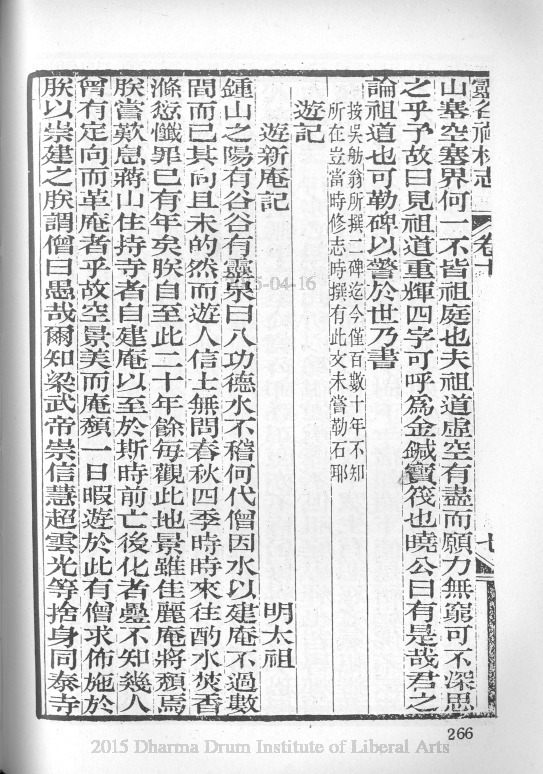 靈谷禪林志 卷十 七
山塞空塞界何一不皆祖庭也夫祖道虛空有盡而願力無窮可不深思
之乎予故曰見祖道重輝四字可呼為金鍼寶筏也曉公曰有是哉君之
論祖道也可勒碑以警於世乃書
按吳舫翁所撰二碑迄今僅百數十年不知
所在豈當時修志時撰有此文未嘗勒石耶
遊記
遊新庵記 明太祖
鍾山之陽有谷谷有靈泉曰八功德水不稽何代僧因水以建庵不過數
間而已其向且未的然而遊人信士無問春秋四季時時來往酌水焚香
滌愆懺罪巳有年矣朕自至此二十年餘每觀此地景雖佳麗庵將頹焉
朕嘗歎息蔣山住持寺者自建庵以至於斯時前亡後化者疊不知幾人
曾有定向而革庵者乎故空景美而庵頹一日暇遊於此有僧求佈施於
朕以崇建之朕謂僧曰愚哉爾知梁武帝崇信慧超雲光等捨身同泰寺
5-04-16
266
2015 Dharma Drum Institute of Liberal Arts